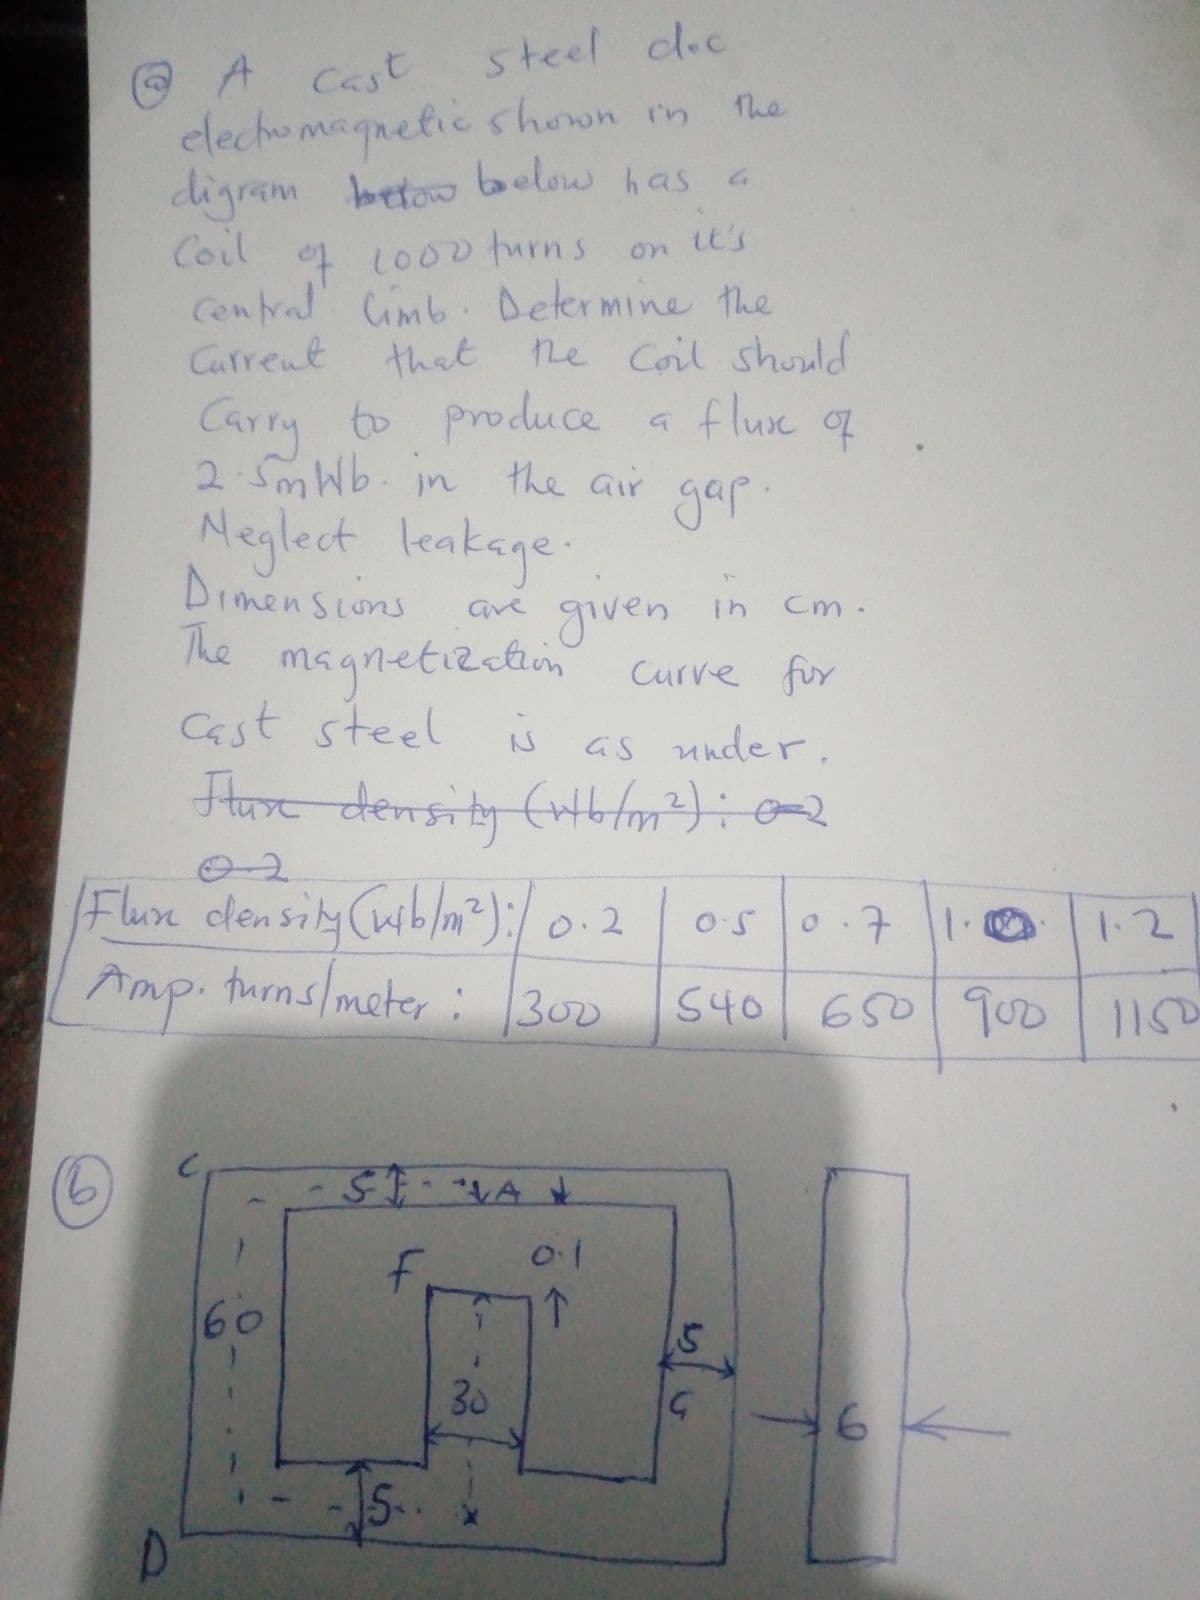 ⓐ A Cast steel d.c
electromagnetic shown in the
digram below below has a
Coil of 1000 turns on it's
Central limb. Determine the
Current that the Coil should
Carry to produce a flux of
2.5mWb. in the air gap.
Neglect leakage.
Dimensions are given in cm.
The magnetization Curve for
Cast steel is as under.
Flux density (Wb/m²): 0.2
0.2
Flux density (wb/m²): 0.2 0.5 0.7 1.0 1.2
Amp. turns/meter: 300 540 650 900 1150
ⓑ
C 5 A
F 0.1
60
5
30 G 6
5
D